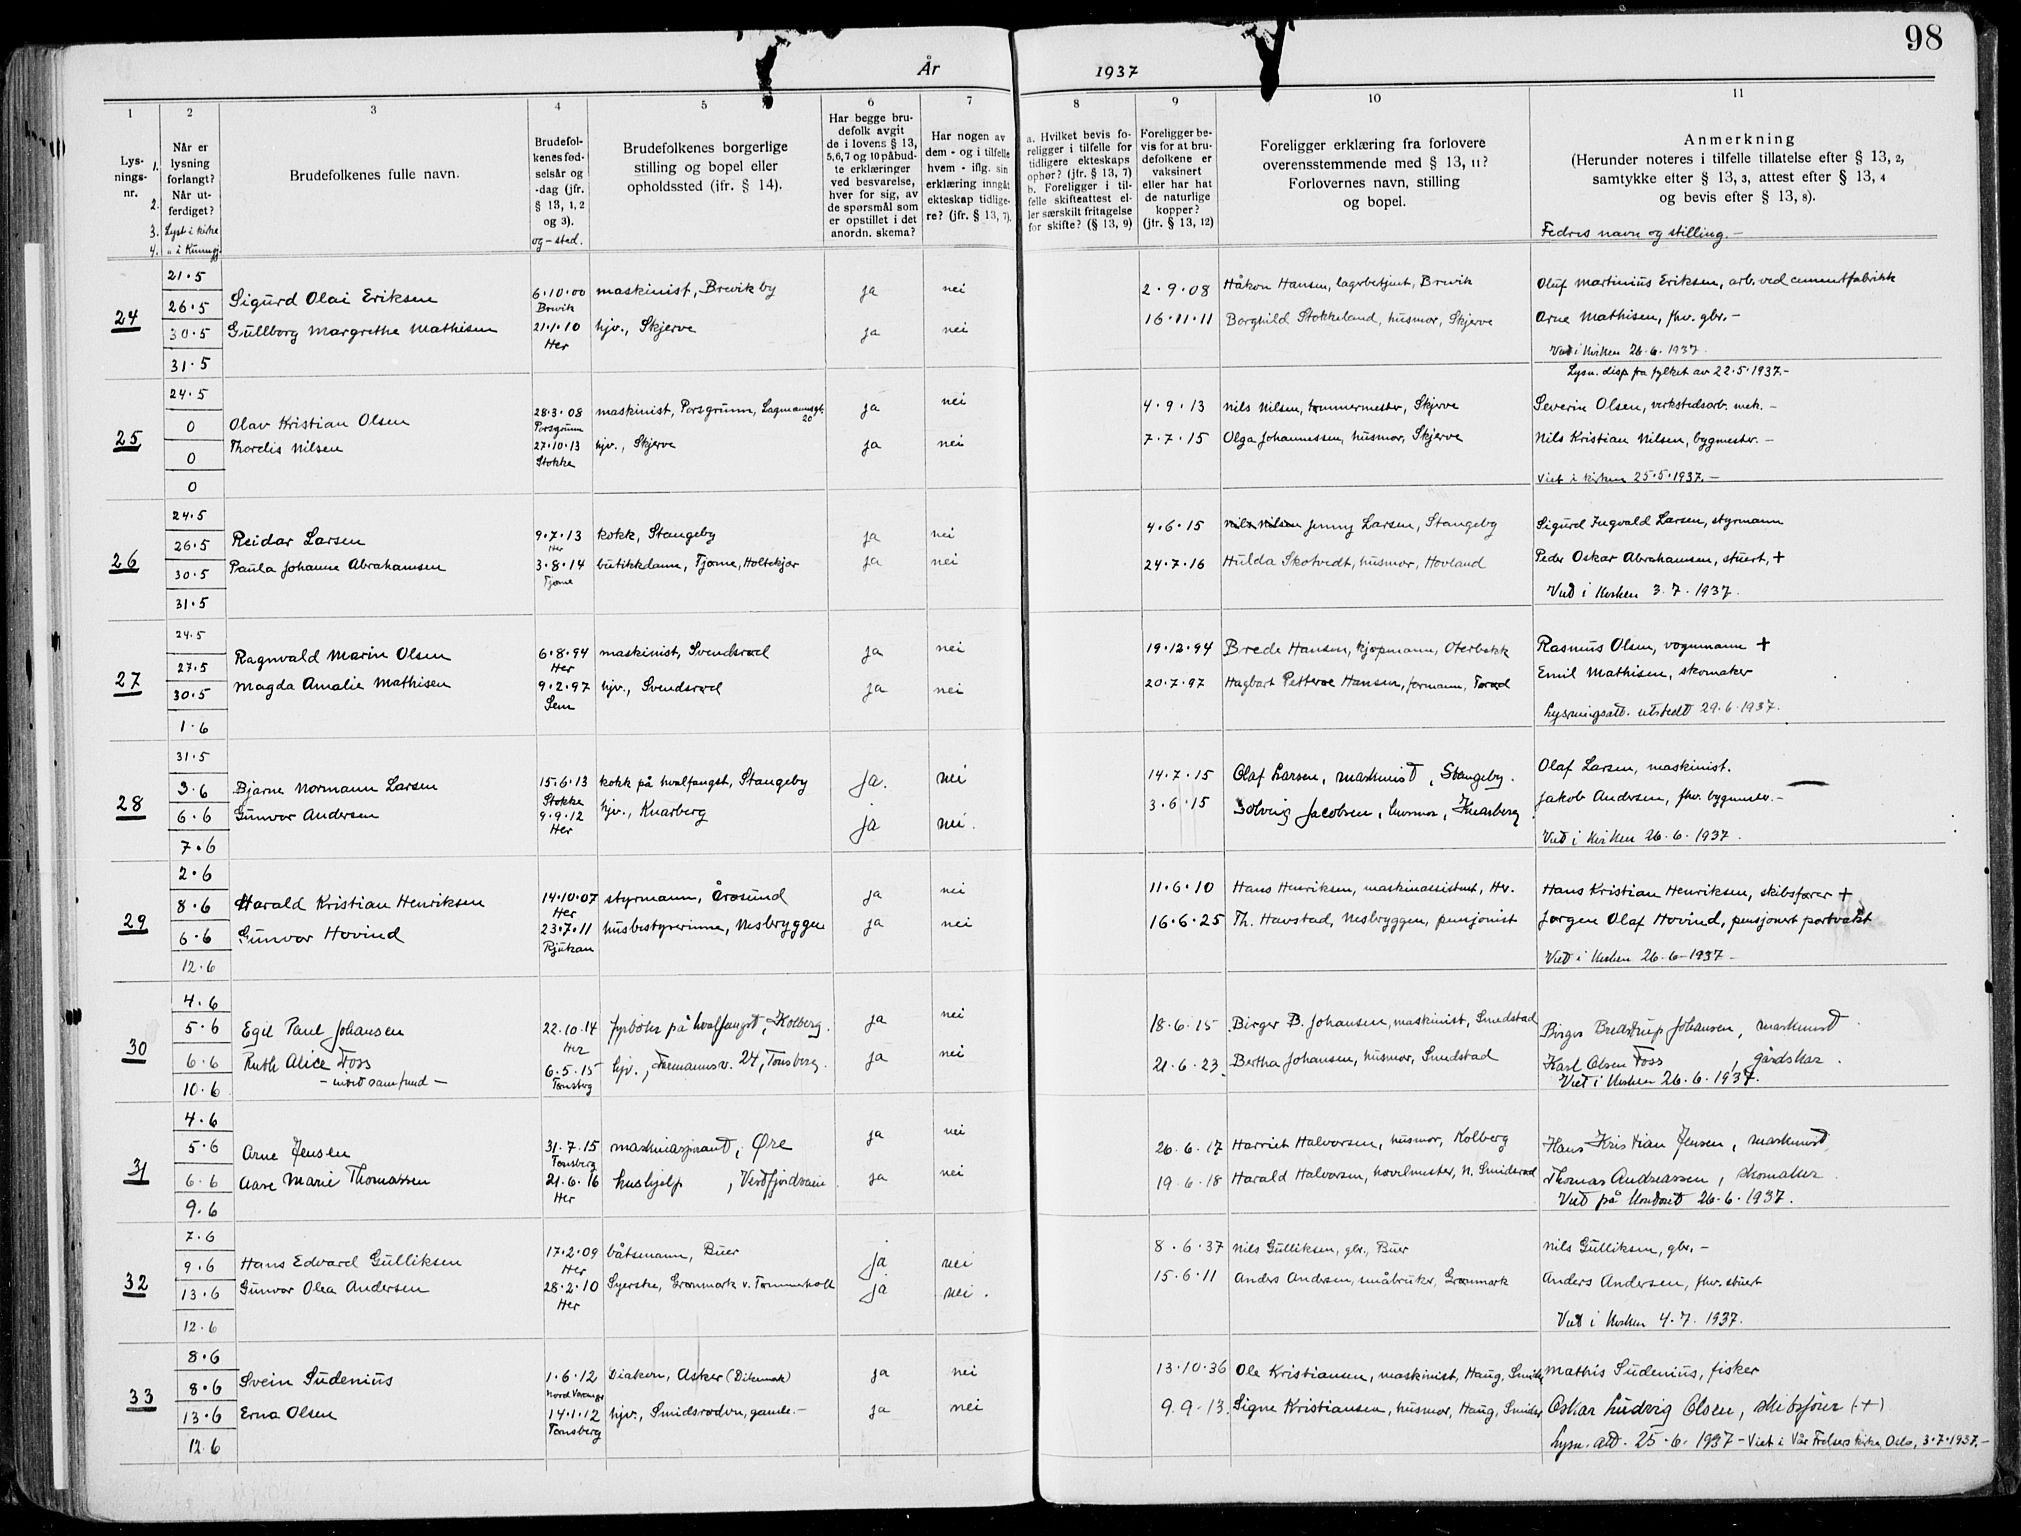 98
År 1937
1 2 3 4 5 6 7 8 9 10 11
Lysningsnr.
1. 2. 3. 4.
Når er lysning forlangt? Når utferdiget?
Lyst i kirke
" i Kunngj.
Brudefolkenes fulle navn.
Brudefolkenes fødselsår og -dag (jfr. § 13, 1, 2 og 3).
og - sted.
Brudefolkenes borgerlige stilling og bopel eller opholdssted (jfr. § 14).
Har begge brudefolk avgit de i lovens § 13, 5, 6, 7 og 10 påbudte erklæringer ved besvarelse, hver for sig, av de spørsmål som er opstillet i det anordn. skema?
Har nogen av dem - og i tilfelle hvem - iflg. sin erklæring inngått ekteskap tidligere? (jfr. § 13, 7).
a. Hvilket bevis foreligger i tilfelle for tidligere ekteskaps ophør? (jfr. § 13, 7) b. Foreligger i tilfelle skifteattest eller særskilt fritagelse for skifte? (§ 13, 9)
Foreligger bevis for at brudefolkene er vaksinert eller har hat de naturlige kopper? (jfr. § 13, 12)
Foreligger erklæring fra forlovere overensstemmende med § 13, 11? Forlovernes navn, stilling og bopel.
Anmerkning
(Herunder noteres i tilfelle tillatelse efter § 13, 2, samtykke efter § 13, 3, attest efter § 13, 4 og bevis efter § 13, 8).
Fedres navn og stilling. -
24
21.5
26.5
30.5
31.5
Sigurd Olai Eriksen 6.10.00 Brevik maskinist, Brevik by ja nei 2.9.08 Håkon Hansen, lagerbetjent, Brevik Oluf Martinius Eriksen, arb. ved cementfabrikk
Gullborg Margrethe Mathisen 21.1.10 Her hjv., Skjerve ja nei 16.11.11 Borghild Stokkeland, husmor, Skjerve Arne Mathisen, fhv. gbr. -
Viet i kirken 26.6.1937.
25
24.5
0
0
0
Lysn. disp fra fylket av 22.5.1937. -
Olav Kristian Olsen 28.3.08 Porsgrunn maskinist, Porsgrunn, Lagmannsgt. 20 ja nei 4.9.13 Nils Nilsen, tømmermester, Skjerve Severin Olsen, verkstedsarb. mek. -
Thordis Nilsen 27.10.13 Stokke hjv., Skjerve ja nei 7.7.15 Olga Johannessen, husmor, Skjerve Nils Kristian Nilsen, bygmester. -
Viet i kirken 25.5.1937. -
26
24.5
26.5
30.5
31.5
Reidar Larsen 9.7.13 Her kokk, Stangeby ja nei 4.6.15 Nils Nilsen Jenny Larsen, Stangeby Sigurd Ingvald Larsen, styrmann
Paula Johanne Abrahamsen 3.8.14 Tjøme butikkdame, Tjøme, Holtekjær ja nei 24.7.16 Hulda Skotvedt, husmor, Hovland Peder Oskar Abrahamsen, stuert, +
Viet i kirken 3.7.1937.
27
24.5
27.5
30.5
1.6
Ragnvald Marin Olsen 6.8.94 Her maskinist, Svendsrød ja nei 19.12.94 Brede Hansen, kjøpmann, Oterbekk Rasmus Olsen, vognmann +
Magda Amalie Mathisen 9.2.97 Sem hjv., Svendsrød ja nei 20.7.97 Hagbart Petterøe Hansen, formann, Torød Emil Mathisen, skomaker
Lysningsatt. utstedt 29.6.1937.
28
31.5
3.6
6.6
7.6
Bjarne Normann Larsen 15.6.13 Stokke kokk på hvalfangst, Stangeby ja. nei 14.7.15 Olaf Larsen, maskinist, Stangeby. Olaf Larsen, maskinist.
Gunvor Andersen 9.9.12 Her hjv., Knarberg ja nei. 3.6.15 Solveig Jacobsen, husmor, Knarberg Jakob Andersen, fhv. bygmester. -
Viet i kirken 26.6.1937.
29
2.6
8.6
6.6
12.6
Harald Kristian Henriksen 14.10.07 Her styrmann, Årøsund ja nei 11.6.10 Hans Henriksen, maskinassistent, Hv. Hans Kristian Henriksen, skibsfører +
Gunvor Hovind 23.7.11 Rjukan husbestyrerinne, Nesbryggen ja nei 16.6.25 Th. Havstad, Nesbryggen, pensjonist Jørgen Olaf Hovind, pensjonert portvakt
Viet i kirken 26.6-1937 -
30
4.6
5.6
6.6
10.6
Egil Paul Johansen 22.10.14 Her fyrbøter på hvalfangst, Kolberg. ja nei 18.6.15 Birger B. Johansen, maskinist, Smidstad Birger Bredstrup Johansen, maskinist.
Ruth Alice Foss 6.5.15 Tønsberg hjv., Farmannsv. 24, Tønsberg. ja nei 21.6.23. Bertha Johansen, husmor, Smidstad Karl Olsen Foss, gårdskar.
Viet i kirken 26.6.1937.
31
4.6
5.6
6.6
9.6
Arne Jensen 31.7.15 Tønsberg maskinaspirant, Øre ja nei 26.6.17 Harriet Halvorsen, husmor, Kolberg Hans Kristian Jensen, maskinist
Aase Marie Thomassen 21.6.16 Her hushjelp, Vestfjordveien ja nei 19.6.18 Harald Halvorsen, høvelmester, N. Smidsrød Thomas Andreassen, skomaker.
Viet på kontoret 26.6.1937.
32
7.6
9.6
13.6
12.6
Hans Edvard Gulliksen 17.2.09 Her båtsmann, Buer ja nei 8.6.37 Nils Gulliksen, gbr., Buer Nils Gulliksen, gbr. -
Gunvor Olea Andersen 28.2.10 Her Syerske, Grønmark v. Tømmerholt ja nei. 15.6.11 Anders Andersen, småbruker, Grønmark Anders Andersen, fhv. stuert
Viet i kirken 4.7.1937.
33
8.6
8.6
13.6
12.6
Svein Sudenius 1.6.12 Nord Varanger Diakon, Asker (Dikemark) ja nei 13.10.36 Ole Kristiansen, maskinist, Haug, Smidsr Mathis Sudenius, fisker
Erna Olsen 14.1.12 Tønsberg hjv., Smidsrødvn, gamle. - ja nei 9.9.13. Signe Kristiansen, husmor, Haug, Smidsr Oskar Ludvig Olsen, skibsfører (+)
Lysn. att. 25.6.1937 - Viet i Vår Frelsers kirke, Oslo, 3.7.1937. -